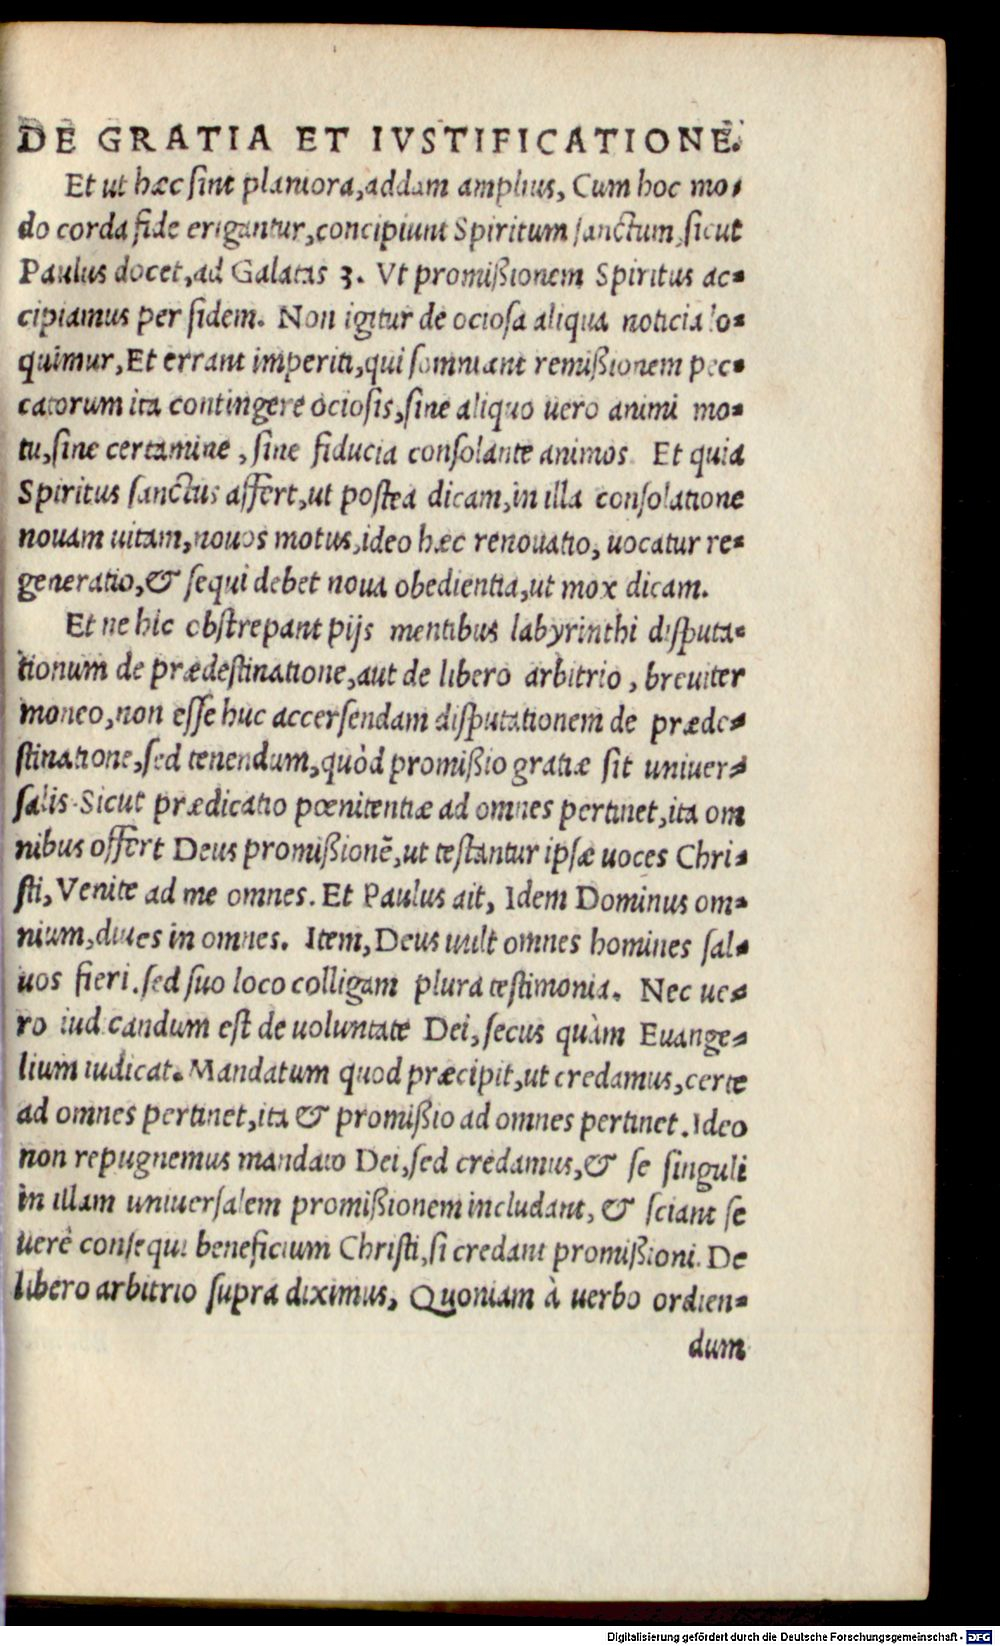 DE GRATIA ET IVSTIFICATIONE.
Et ut hæc sint planiora, addam amplius, Cum hoc mo-
do corda fide eriguntur, concipiunt Spiritum sanctum, sicut
Paulus docet, ad Galatas 3. Vt promißionem Spiritus ac-
cipiamus per fidem. Non igitur de ociosa aliqua noticia lo-
quimur, Et errant imperiti, qui somniant remißionem pec-
catorum ita contingere ociosis, sine aliquo uero animi mo-
tu, sine certamine, sine fiducia consolante animos. Et quia
Spiritus sanctus affert, ut postea dicam, in illa consolatione
nouam uitam, nouos motus, ideo hæc renouatio, uocatur re-
generatio, & sequi debet noua obedientia, ut mox dicam.
Et ne hic obstrepant pijs mentibus labyrinthi disputa-
tionum de prædestinatione, aut de libero arbitrio, breuiter
moneo, non esse huc accersendam disputationem de præde-
stinatione, sed tenendum, quòd promißio gratiæ sit uniuer-
salis. Sicut prædicatio pœnitentiæ ad omnes pertinet, ita om
nibus offert Deus promißionẽ, ut testantur ipsæ uoces Chri-
sti, Venite ad me omnes. Et Paulus ait, Idem Dominus om-
nium, diues in omnes. Item, Deus uult omnes homines sal-
uos fieri. sed suo loco colligam plura testimonia. Nec ue-
ro iudicandum est de uoluntate Dei, secus quàm Euange-
lium iudicat. Mandatum quod præcipit, ut credamus, certe
ad omnes pertinet, ita & promißio ad omnes pertinet. Ideo
non repugnemus mandato Dei, sed credamus, & se singuli
in illam uniuersalem promißionem includant, & sciant se
uerè consequi beneficium Christi, si credant promißioni. De
libero arbitrio supra diximus, Quoniam à uerbo ordien-
dum
Digitalisierung gefördert durch die Deutsche Forschungsgemeinschaft - DFG